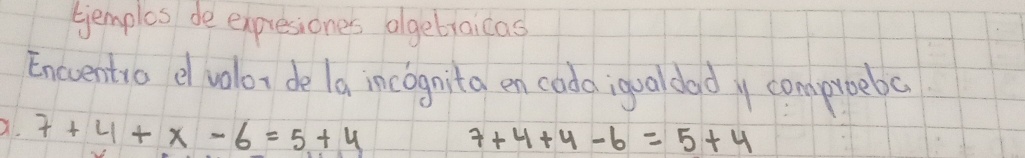 Ejemplos de expresiones algebraicas
Encuentra el valor de la incógnita en cada igualdad y comprueba
a. 7 + 4 + x - 6 = 5 + 4 7 + 4 + 4 - 6 = 5 + 4